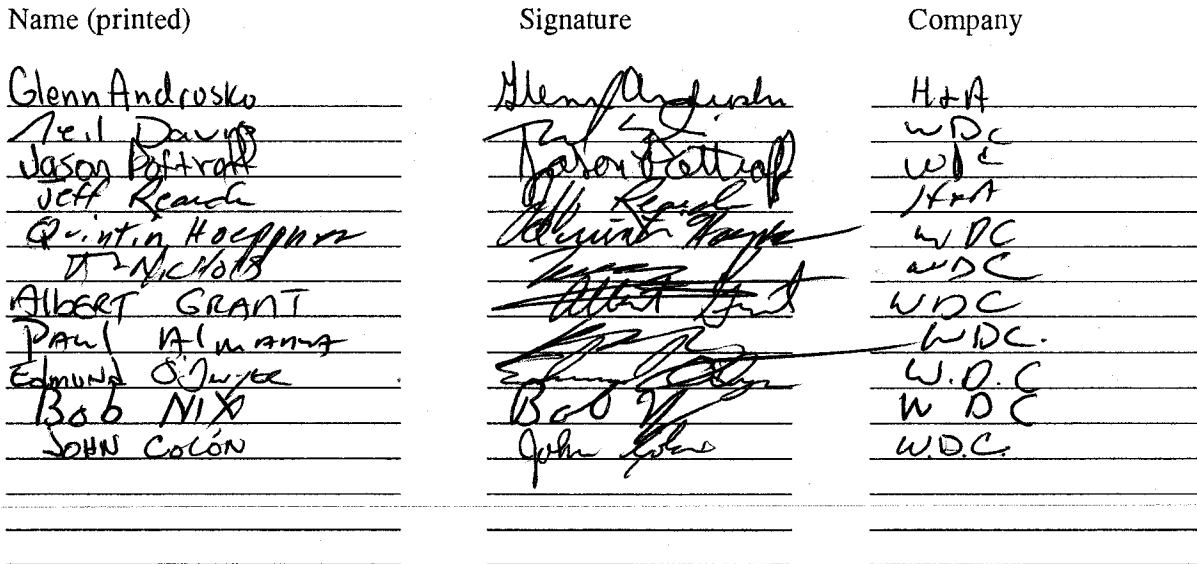 Name (printed) Signature Company
Glenn Androsko Glenn Androsko H+A
Neil Davis WDC
Jason Pottratf Jason Pottratf WDC
Jeff Jeff H+A
Quintin Hoeppner Quintin WDC
Nichols WDC
AlbERT GRANT Albert Grant WDC
PAul WDC.
EDMUND O'Dwyer W.D.C
Bob NIX Bob WDC
JOHN COLÓN John Colon W.D.C.